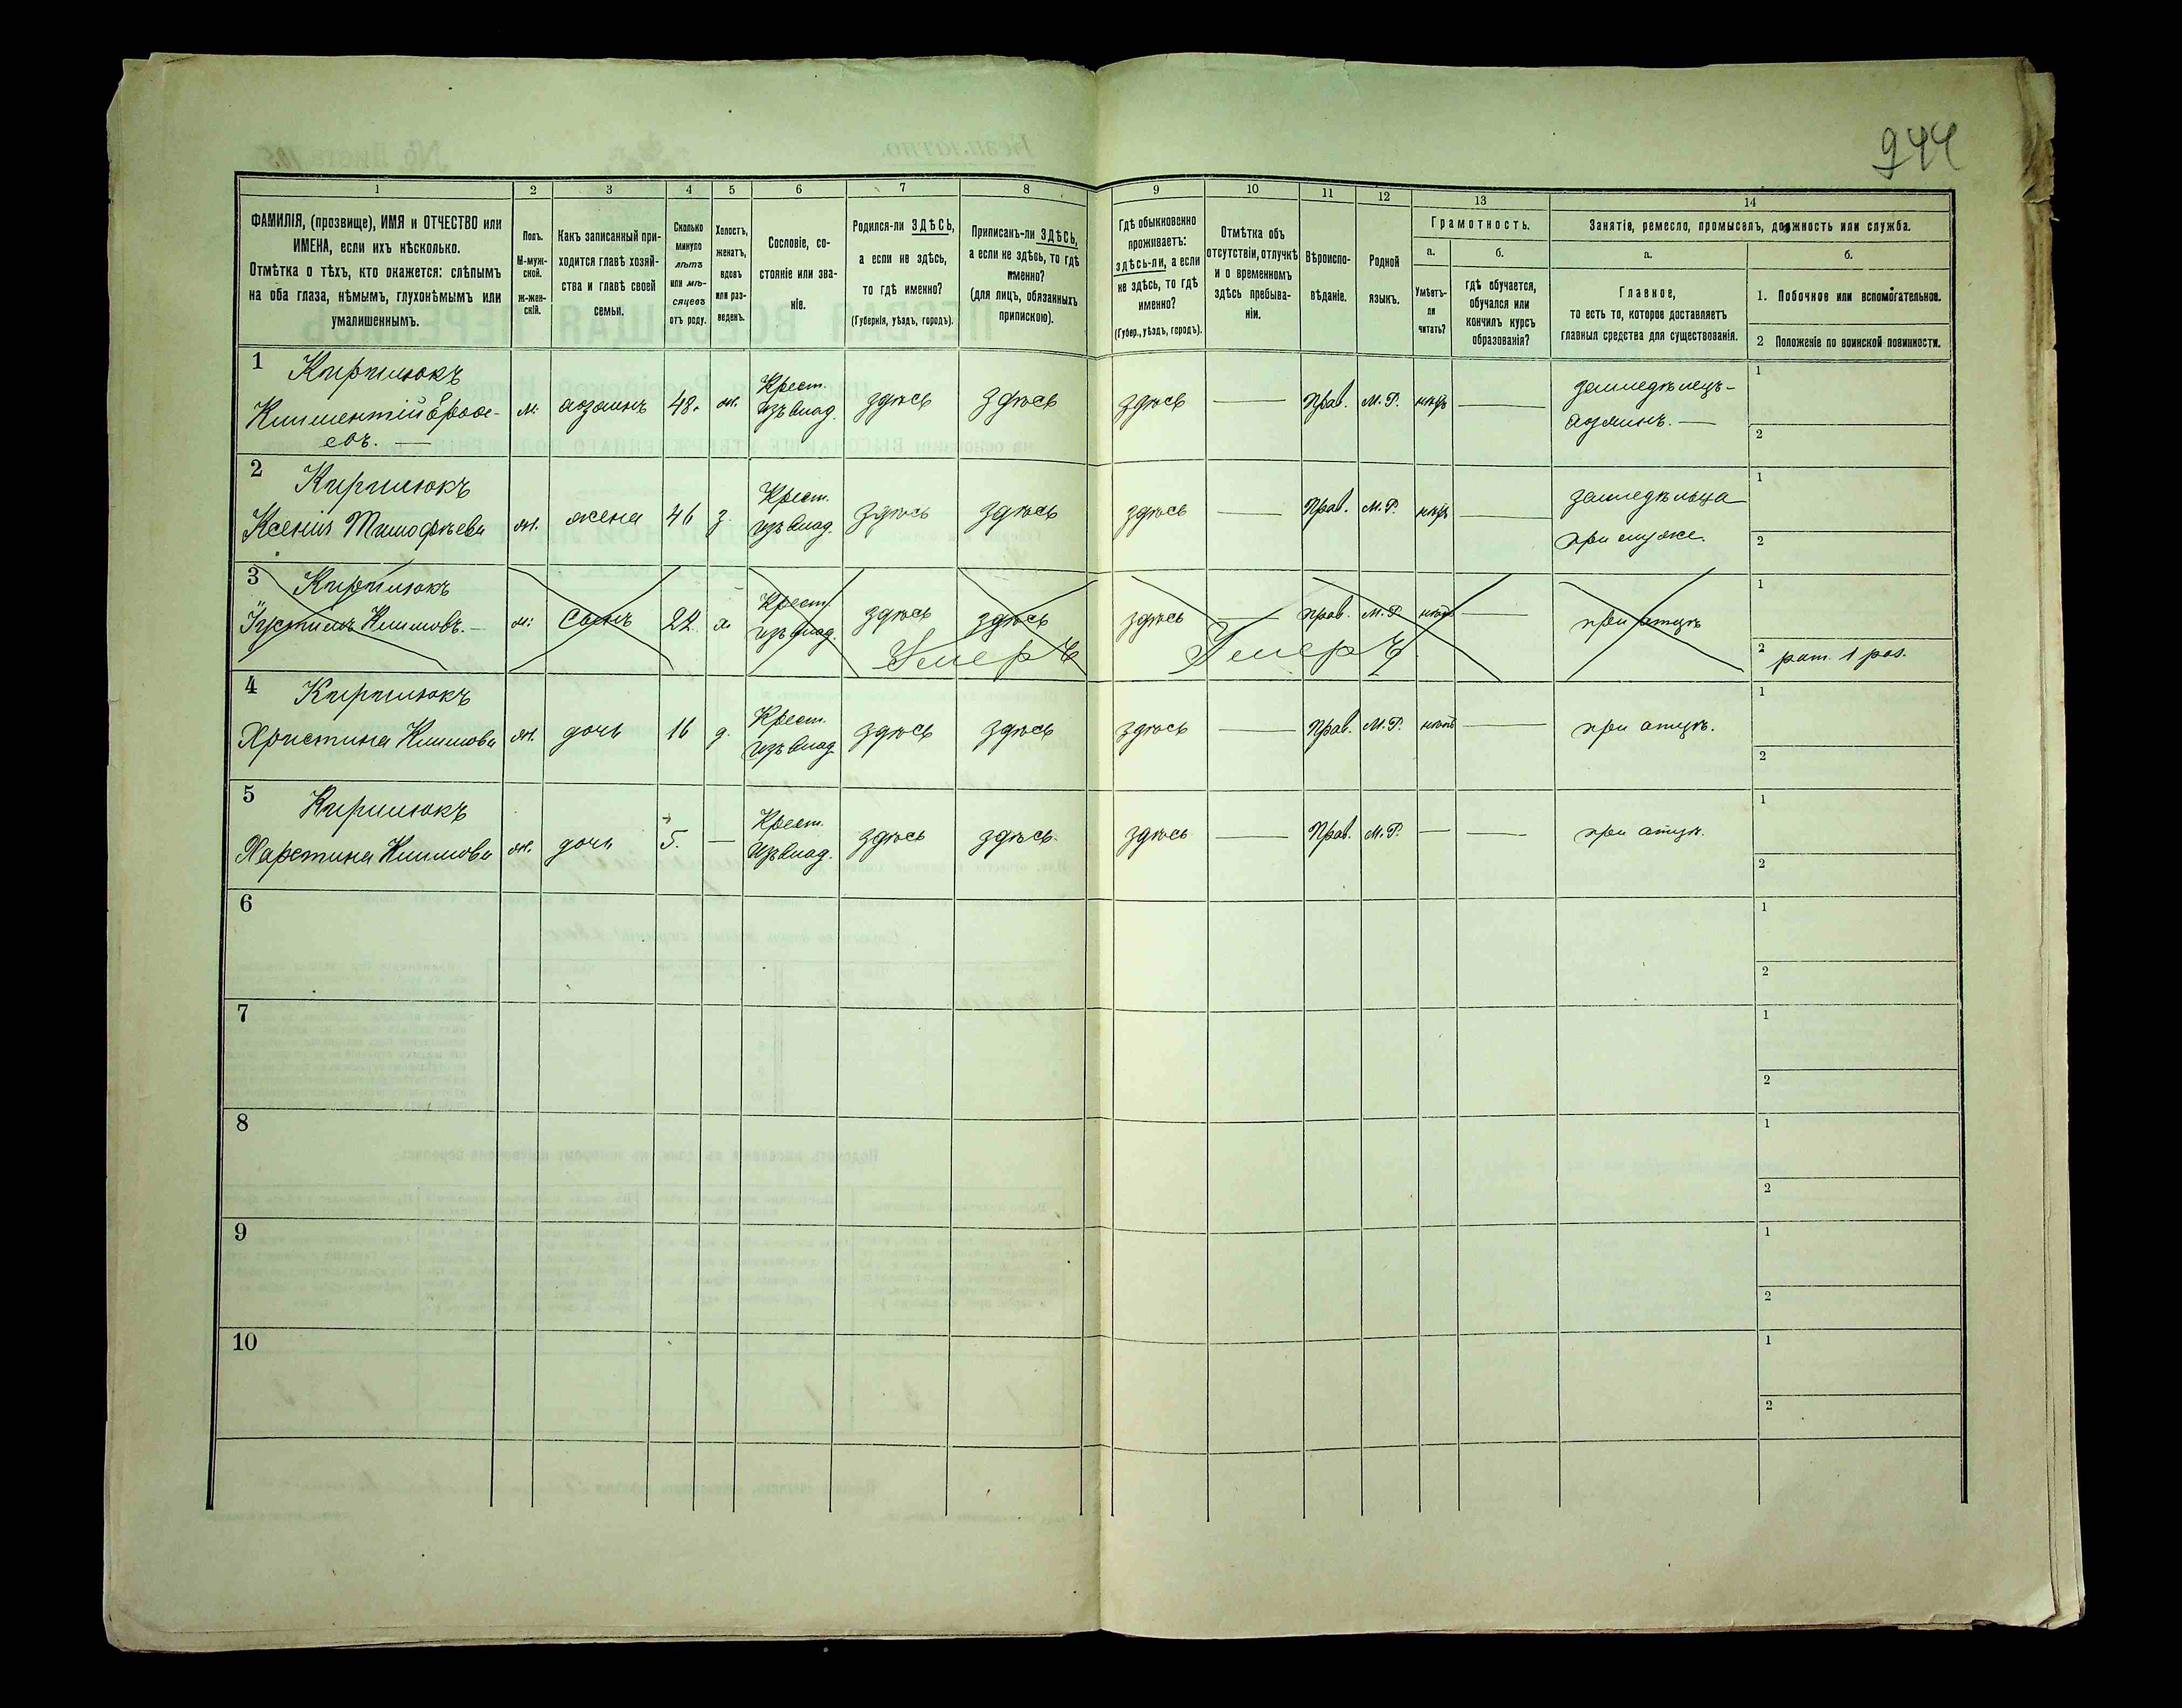 944
1 2 3 4 5 6 7 8 9 10 11 12 13 14
ФАМИЛІЯ, (прозвище), ИМЯ и ОТЧЕСТВО или
ИМЕНА, если ихъ нѣсколько.
Отмѣтка о тѣхъ, кто окажется: слѣпымъ
на оба глаза, нѣмымъ, глухонѣмымъ или
умалишеннымъ.
Полъ.
М-муж-
ской.
ж-жен-
скій.
Какъ записанный при-
ходится главѣ хозяй-
ства и главѣ своей
семьи.
Сколько
минуло
лѣтъ
или мѣ-
сяцевъ
отъ роду.
Холостъ,
женатъ,
вдовъ
или раз-
веденъ.
Сословіе, со-
стояніе или зва-
ніе.
Родился-ли ЗДѢСЬ,
а если не здѣсь,
то гдѣ именно?
(Губернія, уѣздъ, городъ).
Приписанъ-ли ЗДѢСЬ,
а если не здѣсь, то гдѣ
именно?
(для лицъ, обязанныхъ
припискою).
Гдѣ обыкновенно
проживаетъ:
здѣсь-ли, а если
не здѣсь, то гдѣ
именно?
(Губер., уѣздъ, городъ).
Отмѣтка объ
отсутствіи, отлучкѣ
и о временномъ
здѣсь пребыва-
ніи.
Вѣроиспо-
вѣданіе.
Родной
языкъ.
Грамотность.
а.
Умѣетъ-
ли
читать?
б.
гдѣ обучается,
обучался или
кончилъ курсъ
образованія?
Занятіе, ремесло, промыселъ, должность или служба.
а.
Главное,
то есть то, которое доставляетъ
главныя средства для существованія.
б.
1. Побочное или вспомогательное.
2 Положеніе по воинской повинности.
1 Кирилюкъ
Климентій
м. хозяинъ 48. ж. Крест.
изъ влад. здѣсь здѣсь здѣсь — Прав. М. Р. нѣтъ — земледѣлецъ-
хозяинъ. —
1
2
2 Кирилюкъ
Ксенія Тимофѣева ж. жена 46 з. Крест.
изъ влад. здѣсь здѣсь здѣсь — Прав. М. Р. нѣтъ — земледѣлица
при мужѣ.
1
2
3 Кирилюкъ
Густинъ Климовъ. — м: сынъ 22 х Крест.
изъ влад. здѣсь здѣсь здѣсь — прав. М. Р нѣтъ — при отцѣ
Умеръ Умеръ
1
2 рат. 1 раз.
4 Кирилюкъ
Христина Климова ж. дочь 16 д. Крест.
изъ влад. здѣсь здѣсь здѣсь — Прав. М. Р. нѣтъ — при отцѣ.
1
2
5 Кирилюкъ
Харетина Климова ж. дочь 5. — Крест.
изъ влад. здѣсь здѣсь здѣсь — Прав. М. Р. — — при отцѣ.
1
2
6
1
2
7
1
2
8
1
2
9
1
2
10
1
2